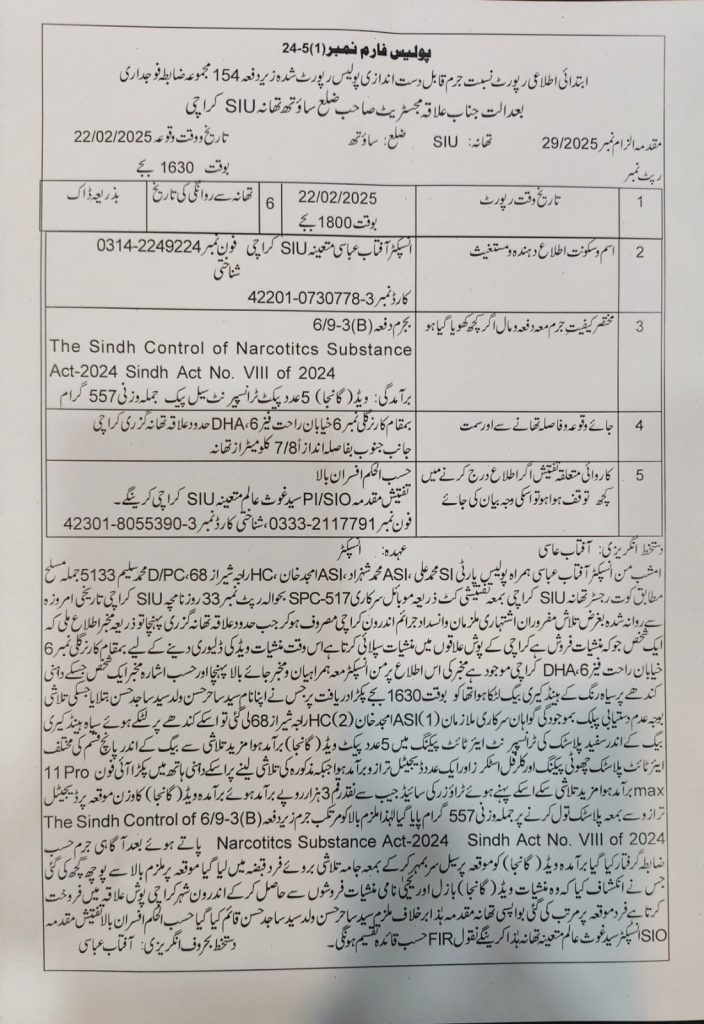 پولیس فارم نمبر 24-5(1)
ابتدائی اطلاعی رپورٹ نسبت جرم قابل دست اندازی پولیس رپورٹ شدہ زیر دفعہ 154 مجموعہ ضابطہ فوجداری
بعدالت جناب علاقہ مجسٹریٹ صاحب ضلع ساؤتھ تھانہ SIU کراچی
مقدمہ الزام نمبر 29/2025 تھانہ: SIU ضلع: ساؤتھ تاریخ و وقت وقوعہ 22/02/2025
رپٹ نمبر بوقت 1630 بجے
1 تاریخ وقت رپورٹ 22/02/2025 بوقت 1800 بجے 6 تھانہ سے روانگی کی تاریخ بذریعہ ڈاک
2 اسم و سکونت اطلاع دہندہ و مستغیث انسپکٹر آفتاب عباسی متعینہ SIU کراچی فون نمبر 0314-2249224
شناختی
کارڈ نمبر 42201-0730778-3
3 مختصر کیفیت جرم معہ دفعہ و مال اگر کچھ کھویا گیا ہو بجرم دفعہ 6/9-3(B)
The Sindh Control of Narcotitcs Substance
Act-2024 Sindh Act No. VIII of 2024
برآمدگی: ویڈ (گانجا) 5 عدد پیکٹ ٹرانسپیرنٹ سیل پیک جملہ وزنی 557 گرام
4 جائے وقوعہ و فاصلہ تھانے سے اور سمت بمقام کارنر گلی نمبر 6 خیابان راحت فیز 6، DHA حدود علاقہ تھانہ گزری کراچی
جانب جنوب بفاصلہ اندازاً 7/8 کلومیٹر از تھانہ
5 کاروائی متعلقہ تفتیش اگر اطلاع درج کرنے میں حسب الحکم افسران بالا
کچھ توقف ہوا ہو تو اسکی وجہ بیان کی جائے تفتیش مقدمہ PI/SIO سید غوث عالم متعینہ SIU کراچی کرینگے۔
فون نمبر 0333-2117791، شناختی کارڈ نمبر 42301-8055390-3
دستخط انگریزی: آفتاب عباسی عہدہ: انسپکٹر
امشب من انسپکٹر آفتاب عباسی ہمراہ پولیس پارٹی SI محمد علی، ASI محمد شہزاد، ASI امجد خان، HC راجہ شیراز 68، D/PC محمد سلیم 5133 جملہ مسلح
مطابق کوت رجسٹر تھانہ SIU کراچی بمعہ تفتیشی کٹ ذریعہ موبائل سرکاری SPC-517 بحوالہ رپٹ نمبر 33 روزنامچہ SIU کراچی تاریخی امروزہ
سے روانہ شدہ بغرض تلاش مفروران اشتہاری ملزمان وانسداد جرائم اندرون کراچی مصروف ہو کر جب حدود علاقہ تھانہ گزری پہنچا تو ذریعہ مخبر اطلاع ملی کہ
ایک شخص جو کہ منشیات فروش ہے کراچی کے پوش علاقوں میں منشیات سپلائی کرتا ہے اس وقت منشیات ویڈ کی ڈلیوری دینے کے لیے بمقام کارنر گلی نمبر 6
خیابان راحت فیز 6، DHA کراچی موجود ہے مخبر کی اس اطلاع پر من انسپکٹر معہ ہمراہیان و مخبر جائے بالا پہنچا اور حسب اشارہ مخبر ایک شخص جسکے داہنی
کندھے پر سیاہ رنگ کے ہینڈ کیری بیگ لٹکا ہوا تھا کو بوقت 1630 بجے پکڑا دریافت پر جس نے اپنا نام سید ساحر حسن ولد سید ساجد حسن بتلایا جسکی تلاشی
بوجہ عدم دستیابی پبلک بموجودگی گواہان سرکاری ملازمان (1) ASI امجد خان (2) HC راجہ شیراز 68 لی گئی تو اسکے کندھے پر لٹکے ہوئے سیاہ ہینڈ کیری
بیگ کے اندر سفید پلاسٹک کی ٹرانسپرنٹ ایئر ٹائٹ پیکنگ میں 5 عدد پیکٹ ویڈ (گانجا) برآمد ہوا مزید تلاشی سے بیگ کے اندر پانچ قسم کی مختلف
ایئر ٹائٹ پلاسٹک چھوٹی پیکنگ اور کلر فل اسٹکرز اور ایک عدد ڈیجیٹل ترازو برآمد ہوا جبکہ مذکورہ کی تلاشی لینے پر اسکے داہنی ہاتھ میں پکڑا آئی فون 11 Pro
max برآمد ہوا مزید تلاشی سکے اسکے پہنے ہوئے ٹراؤزر کی سائڈ جیب سے نقد رقم 3 ہزار روپے برآمد ہوئے برآمدہ ویڈ (گانجا) کا وزن موقعہ پر ڈیجیٹل
ترازو سے بمعہ پلاسٹک تول کرنے پر جملہ وزنی 557 گرام پایا گیا لہذا ملزم بالا کو مرتکب جرم زیر دفعہ 6/9-3(B) The Sindh Control of
Narcotitcs Substance Act-2024 Sindh Act No. VIII of 2024 پاتے ہوئے بعد آگاہی جرم حسب
ضابطہ گرفتار کیا گیا برآمدہ ویڈ (گانجا) کو موقعہ پر سیل سر بمہر کر کے بمعہ جامہ تلاشی بروئے فرد قبضہ میں لیا گیا موقعہ پر ملزم بالا سے پوچھ گچھ کی گئی
جس نے انکشاف کیا کہ وہ منشیات ویڈ (گانجا) بازل اور یحیی نامی منشیات فروشوں سے حاصل کر کے اندرون شہر کراچی پوش علاقہ میں فروخت
کرتا ہے فرد موقعہ پر مرتب کی گئی بواپسی تھانہ مقدمہ ہذا برخلاف ملزم سید ساحر حسن ولد سید ساجد حسن قائم کیا گیا حسب الحکم افسران بالا تفتیش مقدمہ
SIO انسپکٹر سید غوث عالم متعینہ تھانہ ہذا کرینگے نقول FIR حسب قائدہ تقسیم ہونگی۔ دستخط بحروف انگریزی: آفتاب عباسی